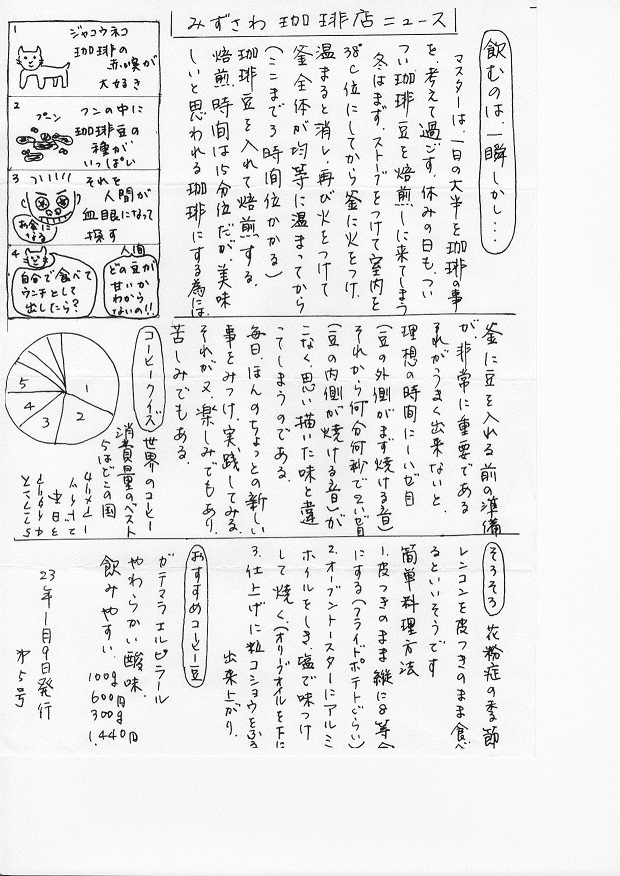 みずさわ 珈琲店ニュース
飲むのは、一瞬しかし・・・
マスターは、一日の大半を珈琲の事
を、考えて過ごす。休みの日も、つい
つい珈琲豆を焙煎しに来てしまう
冬はまず、ストーブをつけて室内を
38℃位にしてから釜に火をつけ、
温まると消し、再び火をつけて
釜全体が均等に温まってから
(ここまで3時間位かかる)
珈琲豆を入れて焙煎する。
焙煎時間は15分位だが、美味
しいと思われる珈琲にする為には
釜に豆を入れる前の準備
が、非常に重要である
それがうまく出来ないと、
理想の時間に一ハゼ目
(豆の外側がまず焼ける音)
それから何分何秒で2ハゼ目
(豆の内側が焼ける音)が
こなく思い描いた味と違
ってしまうのである。
毎日、ほんのちょっとの新しい
事をみつけ、実践してみる。
それが又、楽しみでもあり、
苦しみでもある。
1
ジャコウネコ
珈琲の
赤い喚が
大好き
2
プーン
フンの中に
珈琲豆の
種が
いっぱい
3
それを
人間が
血眼になって
探す
お金に
なる
4
自分で食べて
ウンチとして
出したら?
人間
どの豆が
甘いか
わから
ないの!!
コーヒークイズ
世界のコーヒー
消費量のベスト
5はどこの国
1 アメリカ
2 ドイツ
3 日本
4 イタリア
5 フランス
1
2
3
4
5
そろそろ 花粉症の季節
レンコンを皮つきのまま食べ
るといいそうです
簡単料理方法
1.皮つきのまま縦に8等分
にする(フライドポテトぐらい)
2.オーブントースターにアルミ
ホイルをしき塩で味つけ
して焼く(オリーブオイルを下に
3.仕上げに粒コショウをふる
出来上がり。
おすすめコーヒー豆
ガテマラエルピラール
やわらかい酸味、
飲みやすい。
100g
600円
300g
1,440円
23年1月9日発行
第5号